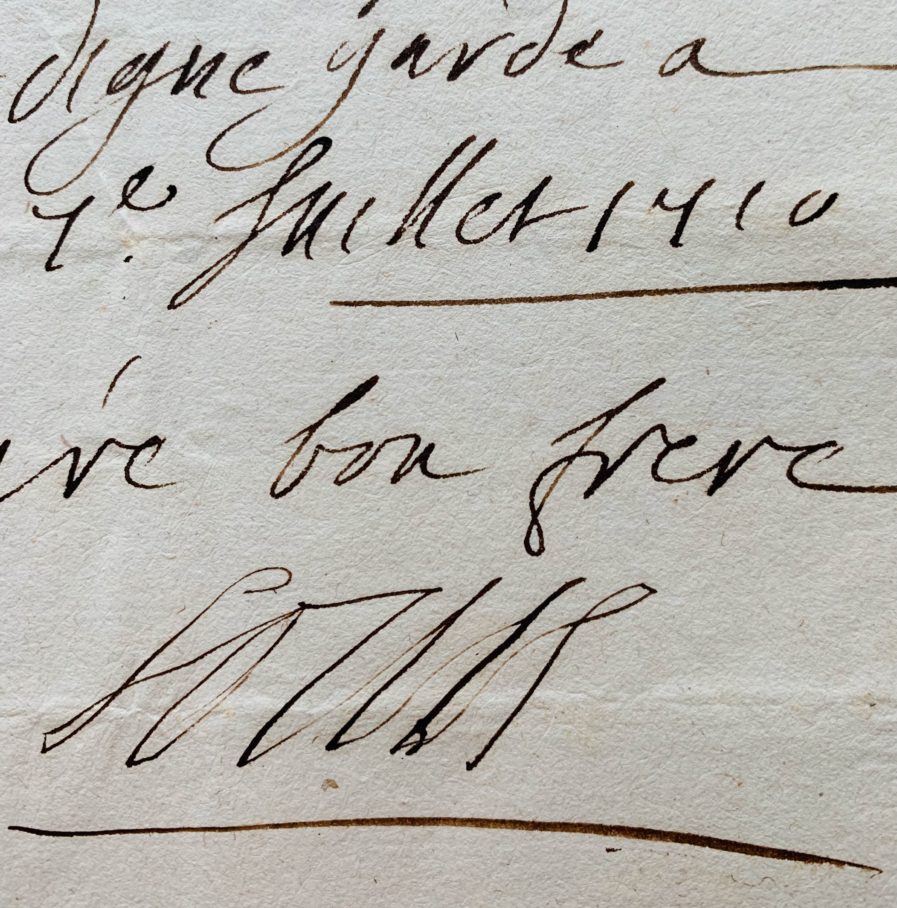 digne garde a
7e. Juillet 1710
bon frere
Louis